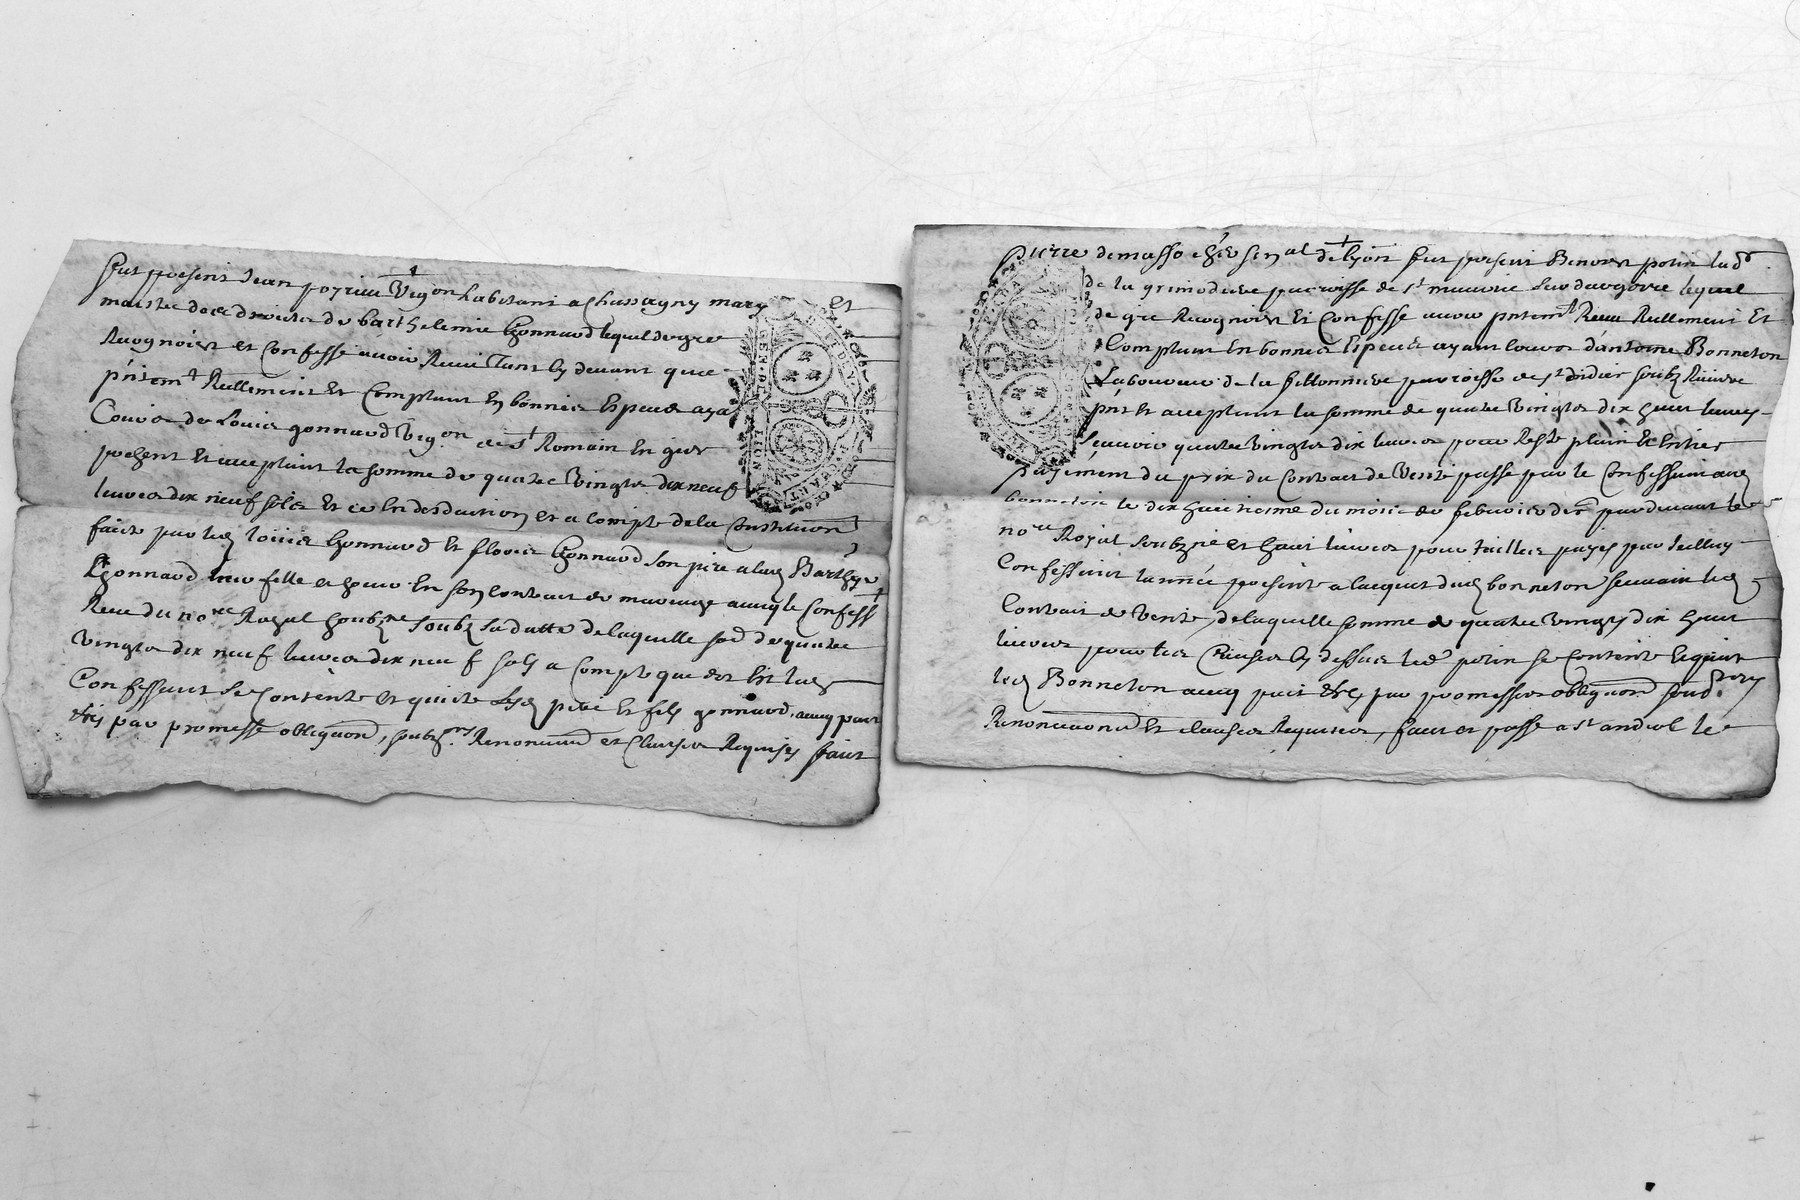 fut present Jean poyriau Vigon habitant a Chassagny mary et
maistre des droicts de barthelemie Gonnard lequel de gre
Recognoist et Confesse avoir Receu Tant cy devant que
pntemt Reellement et Comptant en bonnes Especes aya
Cours de Louis gonnard Vigon de St Romain en gier
present et acceptant la somme de quatre Vingts dix neuf
livres dix neuf sols et ce en desduction et a compte de la Constitution
faite par led louis Gonnard et Gonnard son pere a lad Barthye
Gonnard leur fille et en son contract de mariage avecq le Confesst
Receu du nore Royal soubzne soubz sa datte de laquelle sod de quatre
Vingts dix neuf livres dix neuf sols a Compte que dst led
Confessant se Contente et quitte lesd pere et fils gonnard, avecq pact
par promesse obligaond, soubzons Renonciaond et Clauses Requises fait
Pierre demasso Senal de lyon fut present Benoist potin lad
de la grimodiere parroisse de st maurice sur dargoire lequel
de gre Recognoist Et Confesse avoir pntemt Receu Reellement Et
Comptant En bonnes Especes ayant cours d'antoine Bonneton
Laboureur de la fillonniere parroisse de st didier soubz Riverie
pnt et acceptant la somme de quatre Vingts dix huit livres
scavoir quatre Vingts dix livres pour Reste plain Et Entier
payement du prix du Contract de Vente passe par le Confessant aud
bonneton le dix huictiesme du mois de febvrier der pardevant le
nore Royal soubzne et huit livres pour tailles payes par led
Confessant lannee presente a lacquit dud bonneton suivant led
Contract de Vente, de laquelle somme de quatre Vingts dix huit
livres pour les Causes cy dessus led potin se Contente Equitte
led Bonneton avecq pact par promesses obligaond soubd
Renonciaond Et clauses Requises, fait et passe a st andiol le